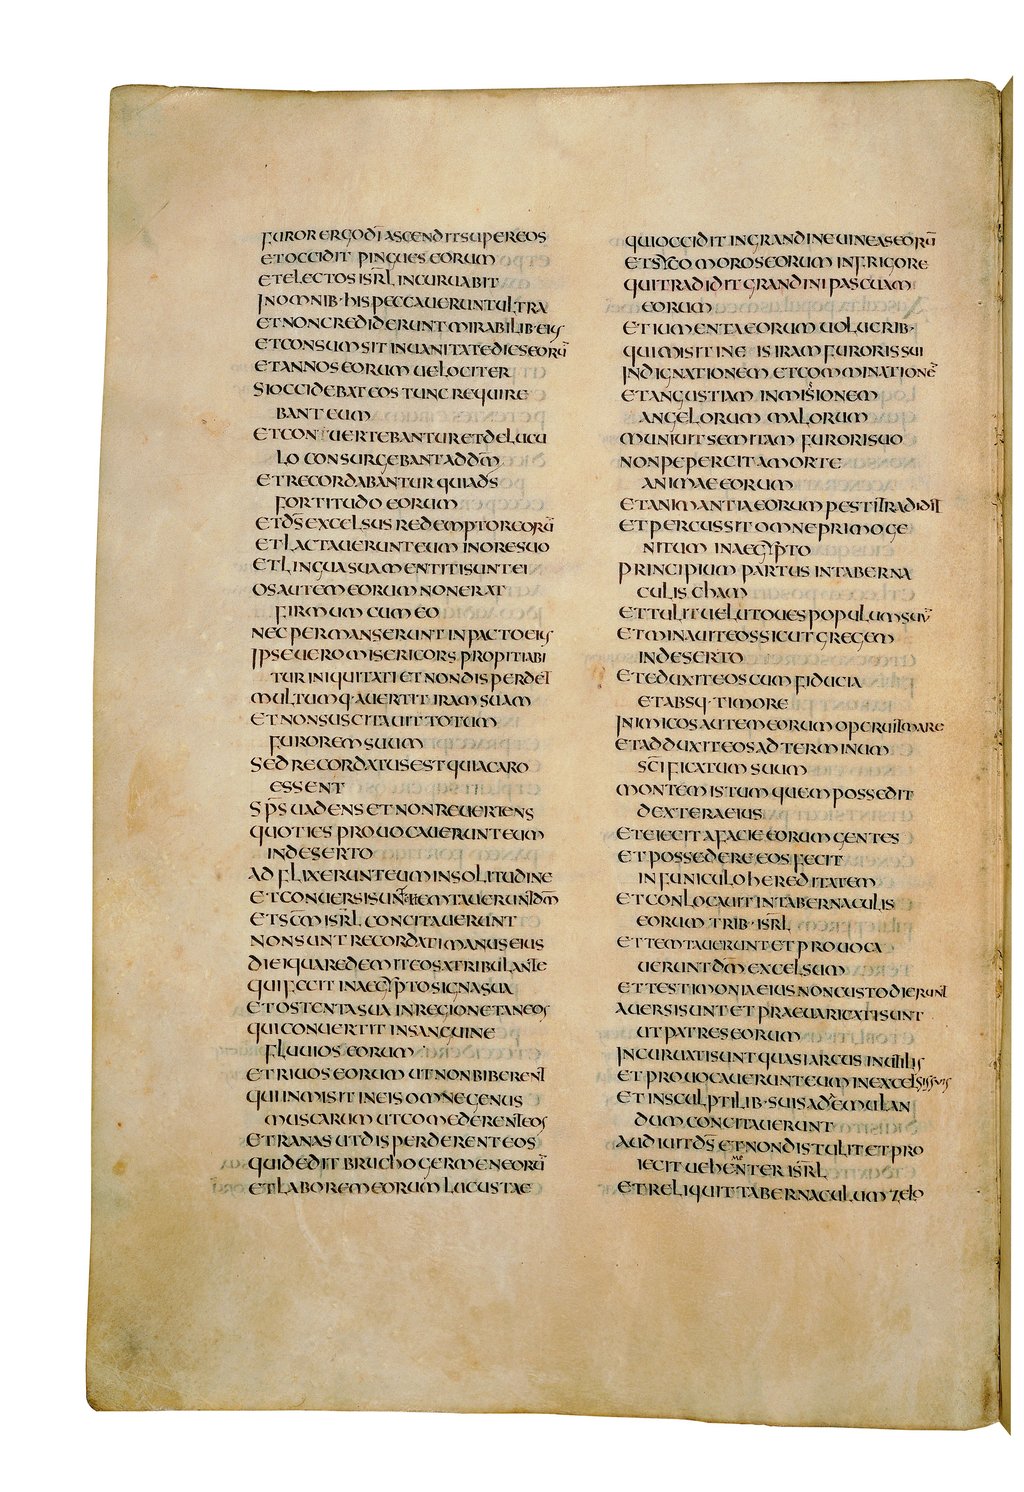 FUROR ERGO DĪ ASCENDIT SUPER EOS
ET OCCIDIT PINGUES EORUM
ET ELECTOS ISRL̄ INCURUABIT
IN OMNIB· HIS PECCAUERUNT ULTRA
ET NON CREDIDERUNT MIRABILIB· EIUS
ET CONSUMSIT IN UANITATE DIES EORŪ
ET ANNOS EORUM UELOCITER
SI OCCIDEBAT EOS TUNC REQUIRE
BANT EUM
ET CONUERTEBANTUR ET DELUCU
LO CONSURGEBANT AD DM̄
ET RECORDABANTUR QUIA DS̄
FORTITUDO EORUM
ET DS̄ EXCELSUS REDEMPTOR EORŪ
ET LACTAUERUNT EUM IN ORE SUO
ET LINGUA SUA MENTITI SUNT EI
OS AUTEM EORUM NON ERAT
FIRMUM CUM EO
NEC PERMANSERUNT IN PACTO EIUS
IPSE UERO MISERICORS PROPITIABI
TUR INIQUITATI ET NON DISPERDET
MULTUMQ· AUERTIT IRAM SUAM
ET NON SUSCITAUIT TOTUM
FUROREM SUUM
SED RECORDATUS EST QUIA CARO
ESSENT
SPS̄ UADENS ET NON REUERTENS
QUOTIES PROUOCAUERUNT EUM
IN DESERTO
ADFLIXERUNT EUM IN SOLITUDINE
ET CONUERSI SUNT ET TEMTAUERUNT DM̄
ET SCM̄ ISRL̄ CONCITAUERUNT
NON SUNT RECORDATI MANUS EIUS
DIEI QUA REDEMIT EOS A TRIBULANTE
QUI FECIT IN AEGYPTO SIGNA SUA
ET OSTENTA SUA IN REGIONE TANEOS
QUI CONUERTIT IN SANGUINE
FLUUIOS EORUM
ET RIUOS EORUM UT NON BIBERENT
QUI INMISIT IN EIS OMNE GENUS
MUSCARUM UT COMEDERENT EOS
ET RANAS UT DISPERDERENT EOS
QUI DEDIT BRUCHO GERMEN EORŪ
ET LABOREM EORUM LUCUSTAE
QUI OCCIDIT IN GRANDINE UINEAS EORŪ
ET SYCOMOROS EORUM IN FRIGORE
QUI TRADIDIT GRANDINI PASCUAM
EORUM
ET IUMENTA EORUM UOLUCRIB·
QUI MISIT IN E IS IRAM FURORIS SUI
INDIGNATIONEM ET COMMINATIONĒ
ET ANGUSTIAM INMISSIONEM
ANGELORUM MALORUM
MUNIUIT SEMITAM FURORI SUO
NON PEPERCIT A MORTE
ANIMAE EORUM
ET ANIMANTIA EORUM PESTI TRADIDIT
ET PERCUSSIT OMNE PRIMOGE
NITUM IN AEGYPTO
PRINCIPIUM PARTUS IN TABERNA
CULIS CHAM
ET TULIT UELUT OUES POPULUM SUŪ
ET MINAUIT EOS SICUT GREGEM
IN DESERTO
ET EDUXIT EOS CUM FIDUCIA
ET ABSQ· TIMORE
INIMICOS AUTEM EORUM OPERUIT MARE
ET ADDUXIT EOS AD TERMINUM
SC̄IFICATUM SUUM
MONTEM ISTUM QUEM POSSEDIT
DEXTERA EIUS
ET EIECIT A FACIE EORUM GENTES
ET POSSEDERE EOS FECIT
IN FUNICULO HEREDITATEM
ET CONLOCAUIT IN TABERNACULIS
EORUM TRIB· ISRL̄
ET TEMTAUERUNT ET PROUOCA
UERUNT DM̄ EXCELSUM
ET TESTIMONIA EIUS NON CUSTODIERUNT
AUERSI SUNT ET PRAEUARICATI SUNT
UT PATRES EORUM
INCURUATI SUNT QUASI ARCUS INUTILIS
ET PROUOCAUERUNT EUM IN EXCELSIS SUIS
ET IN SCULPTILIB· SUIS AD EMULAN
DUM CONCITAUERUNT
AUDIUIT DS̄ ET NON DISTULIT ET PRO
IECIT UEHEMENTER ISRL̄
ET RELIQUIT TABERNACULUM ZELO